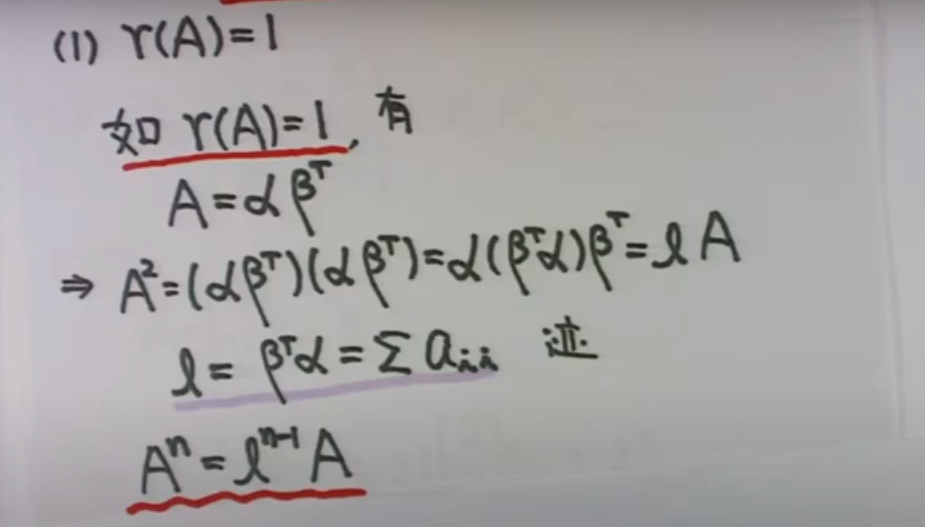 (1) r(A)=1
如 r(A)=1, 有
A=αβᵀ
⇒ A²=(αβᵀ)(αβᵀ)=α(βᵀα)βᵀ=lA
l=βᵀα=Σaᵢᵢ 迹
Aⁿ=lⁿ⁻¹A